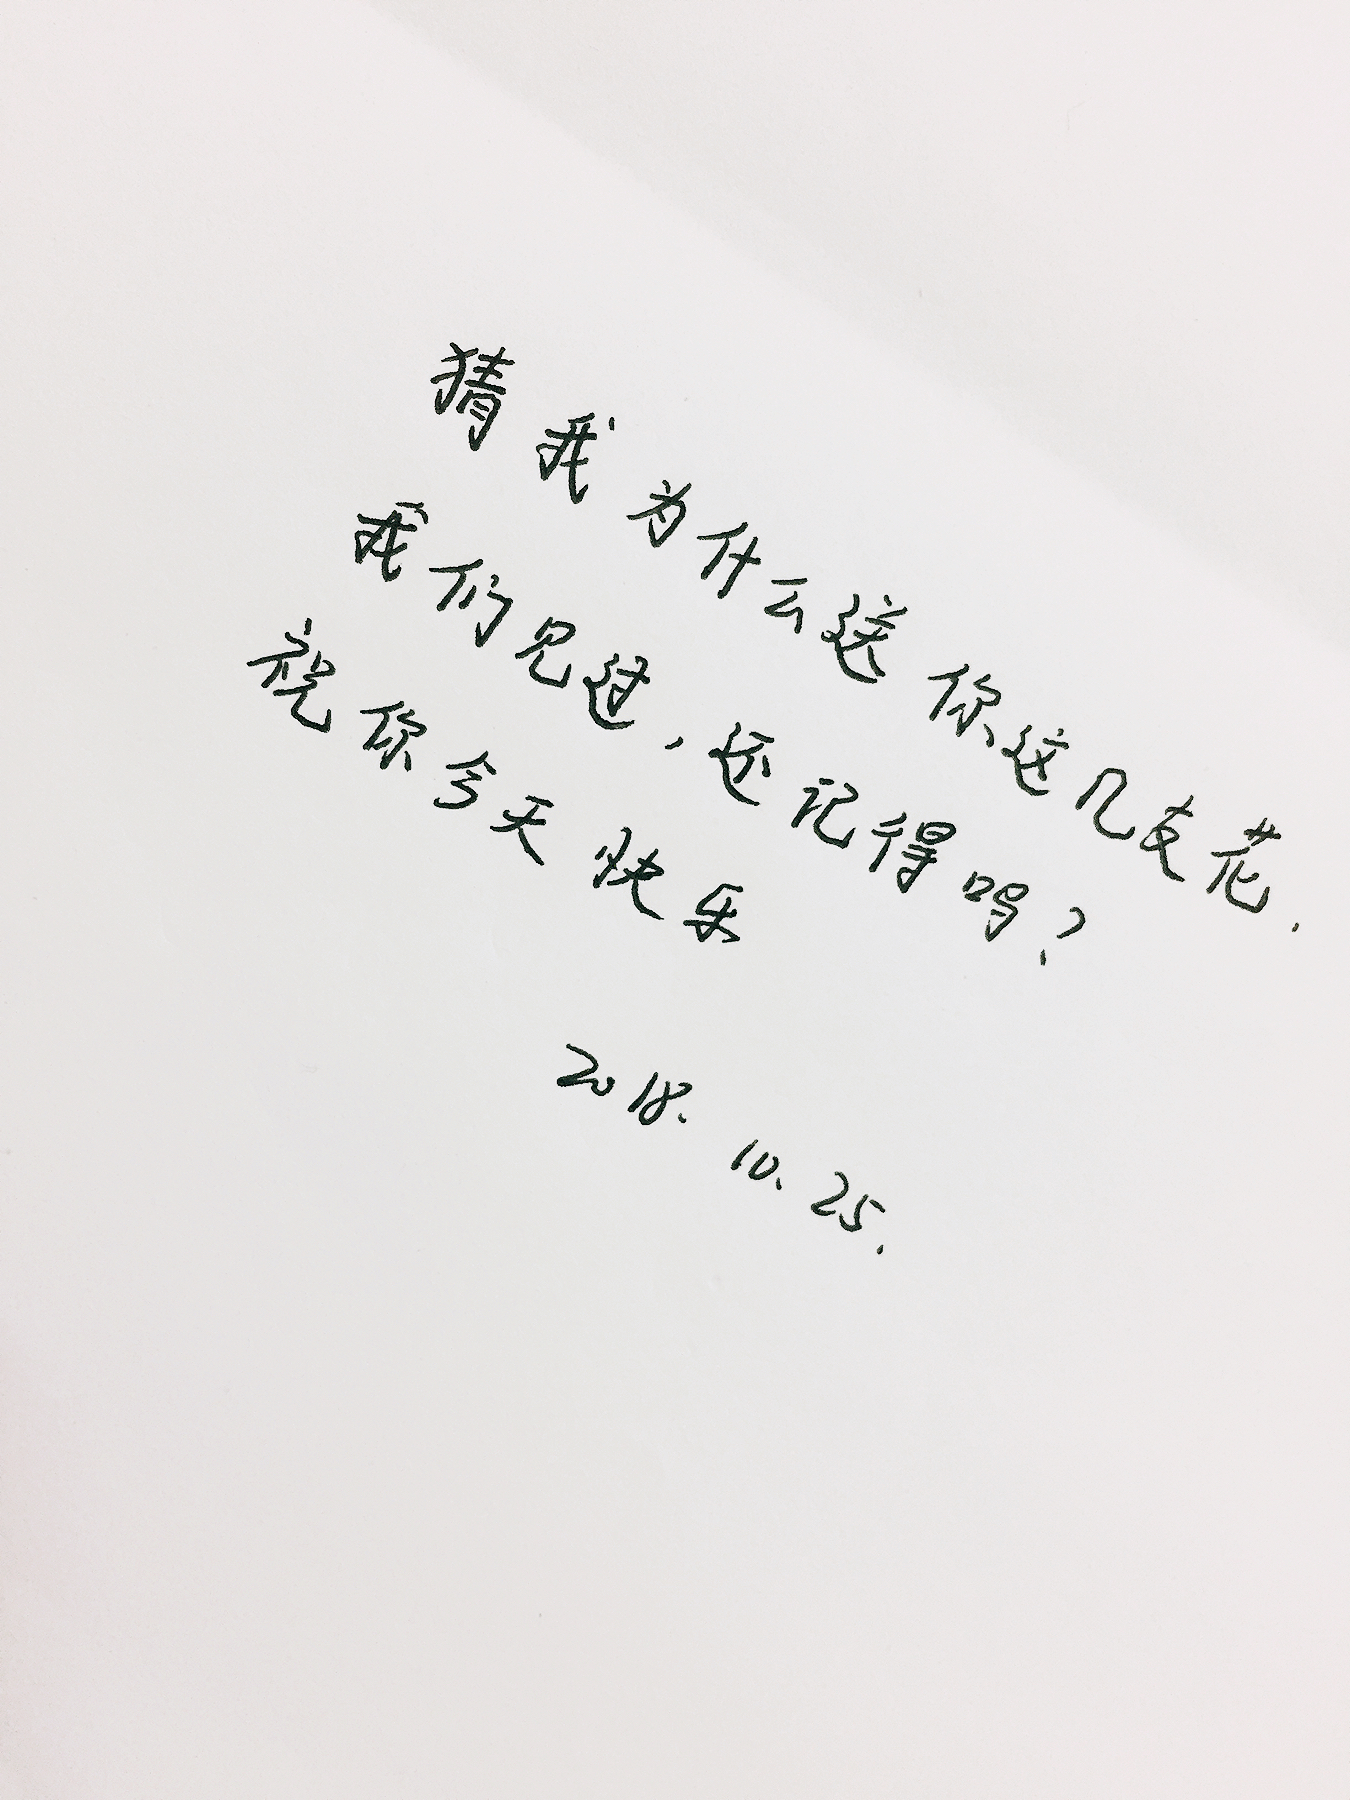 猜我为什么送你这几支花.
我们见过,还记得吗?
祝你今天快乐
2018. 10. 25.